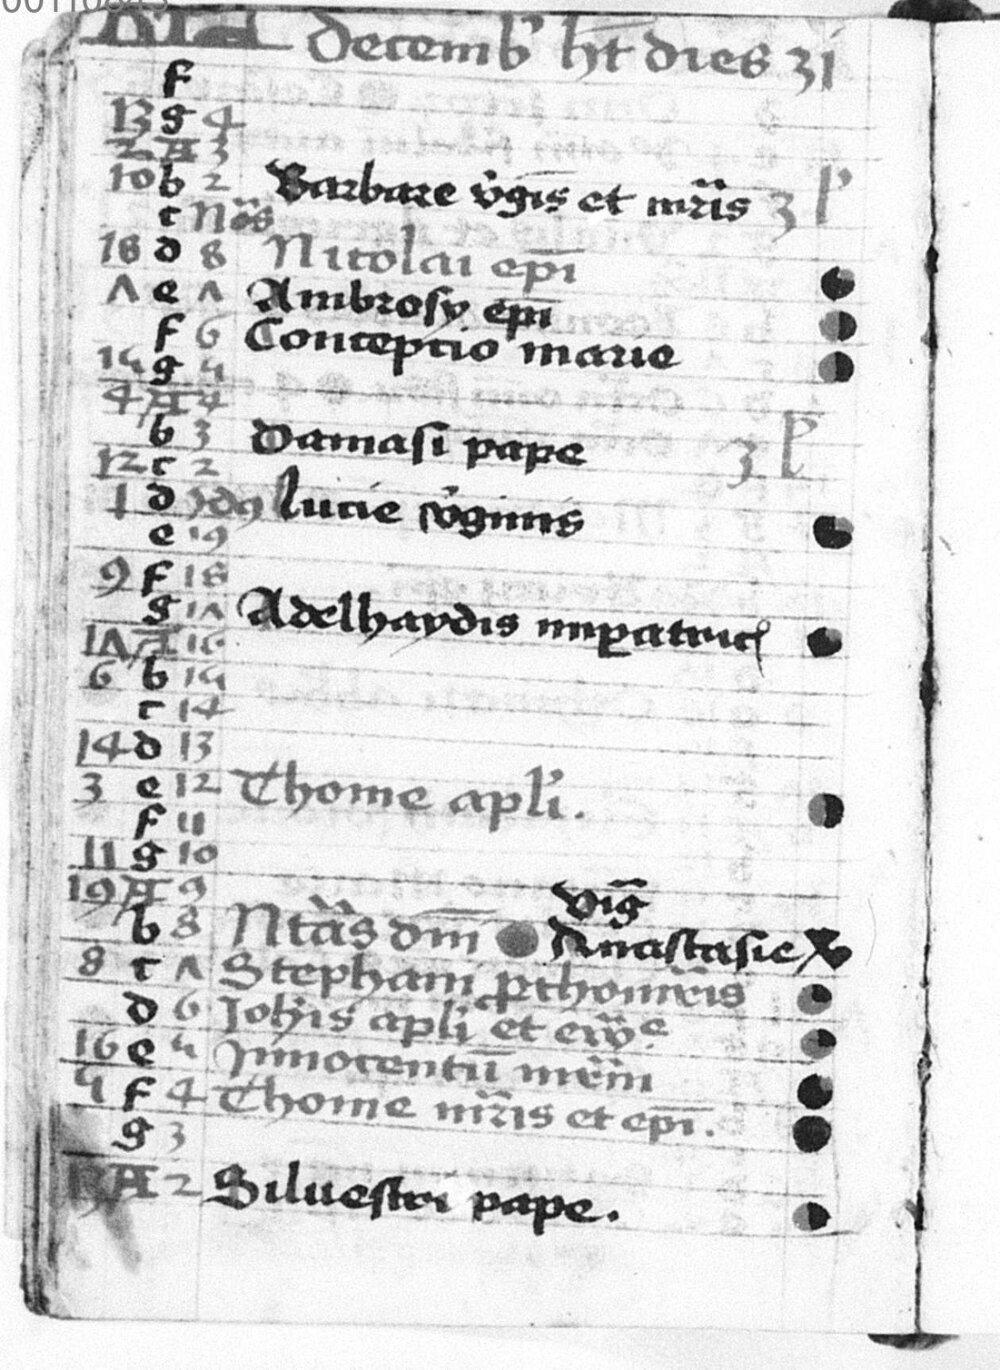 Decemb' h̅t dies 31
f
13 g 4
2 A 3
10 b 2 Barbare v̊gi̅s et mr̅is 3 l'
c No̅s
18 d 8 Nicolai ep̅i
Λ e Λ Ambrosy ep̅i
f 6 Conceptio marie
15 g 5
4 A 4
b 3 Damasi pape 3 l'
12 c 2
1 d Jdꝰ lucie v̊ginis
e 19
9 f 18
g 1Λ Adelhaydis imꝑatric
1Λ A 16
6 b 15
c 14
14 d 13
3 e 12 Thome apl'i.
f 11
11 g 10
19 A 9 vig̅
b 8 Nta̅s dm̅ Anastasie
8 c Λ Stephani ꝓthom̅ris
d 6 Joh̅is apl'i et ew̅e
16 e 5 Innocentu̅ mr̅m
5 f 4 Thome mr̅is et ep̅i.
g 3
13 A 2 Siluestri pape.